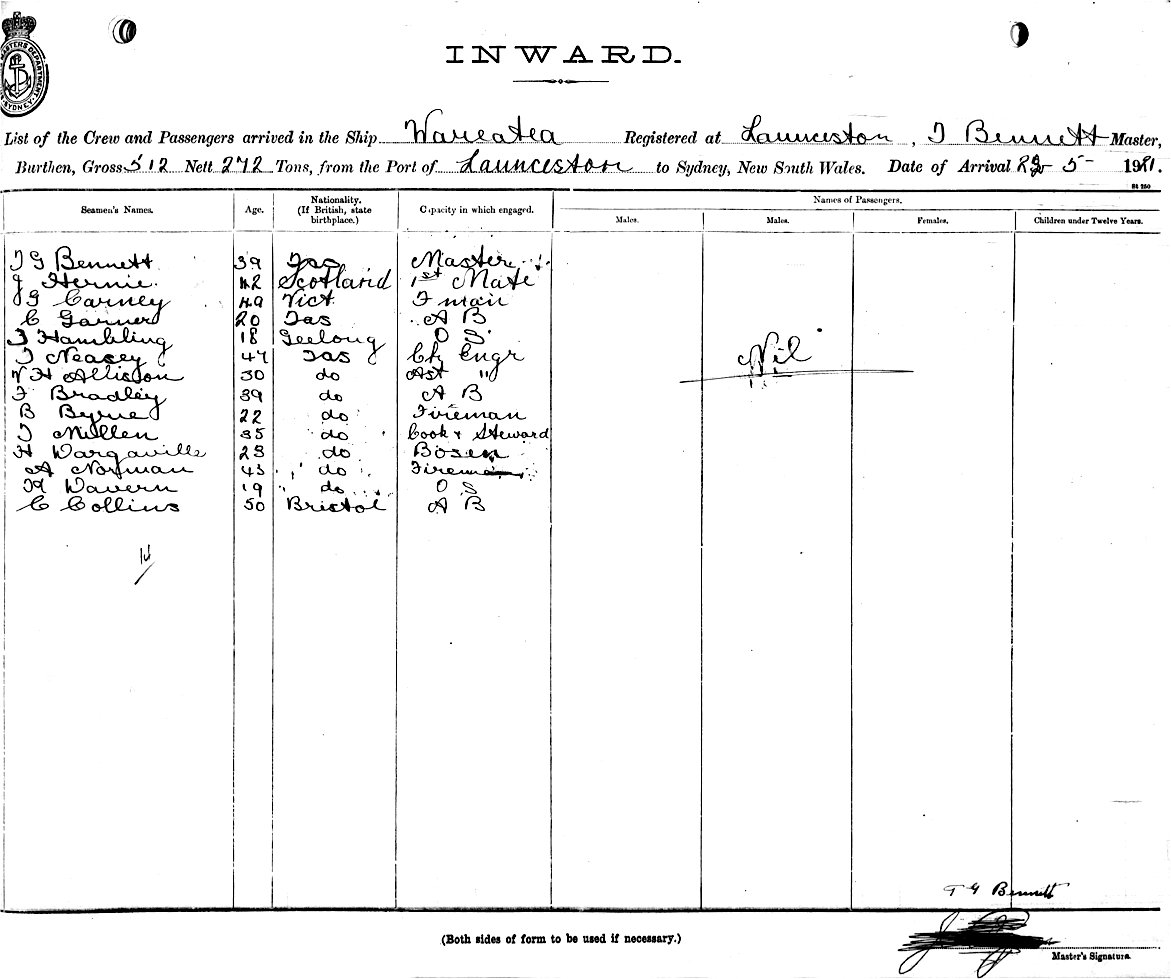 MASTERS DEPARTMENT
SYDNEY
INWARD.
List of the Crew and Passengers arrived in the Ship Wareatea Registered at Launceston, T Bennett Master,
Burthen, Gross 512 Nett 272 Tons, from the Port of Launceston to Sydney, New South Wales. Date of Arrival 5
St 250
Names of Passengers.
Seamen's Names. Age. Nationality. (If British, state birthplace.) Capacity in which engaged. Males. Males. Females. Children under Twelve Years.
T G Bennett 39 Tas Master
J Hernie 42 Scotland 1st Mate
Carney 49 Vict F man
C Garner 20 Tas A B
T Hambling 18 Geelong O S
T Neasey 47 Tas Engr
H Allison 30 do Ast "
F Bradley 39 do A B
B Byrne 22 do Fireman
T Mullen 35 do Cook & Steward
H Wargaville 23 do Bosen
A Norman 43 do Fireman
H Wavern 19 do O S
C Collins 50 Bristol A B
Nil
14
T G Bennett
(Both sides of form to be used if necessary.)
Master's Signature.